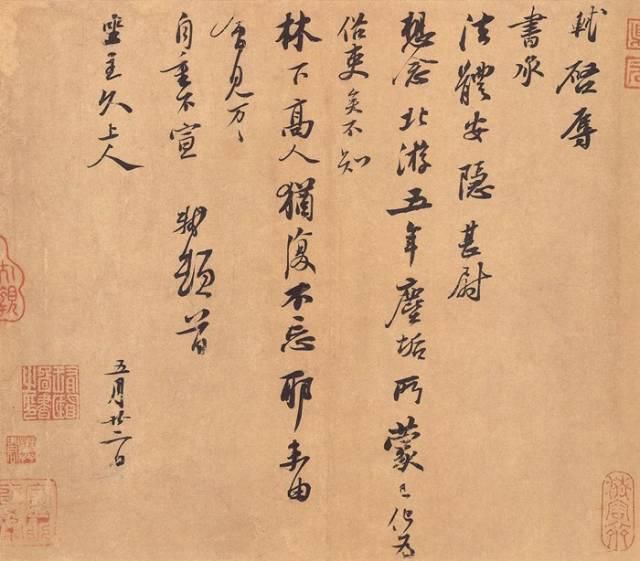 軾啓辱
書承
法體安隱甚尉
想念北游五年塵垢所蒙已化爲
俗吏矣不知
林下高人猶復不忘耶未由
會見万々
自重不宣 軾頓首
坐主久上人
五月廿二日